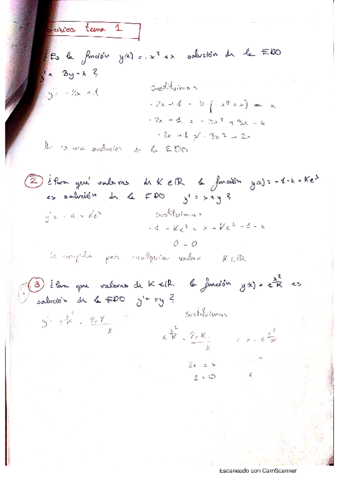 tema 1
¿Es la función y(x) = -x² + x solución de la EDO
y' = 3y - x ?
y' = -2x + 1
Sustituimos
-2x + 1 = 3 (-x² + x) - x
-2x + 1 = -3x² + 3x - x
-2x + 1 ≠ -3x² + 2x
No es una solución de la EDO
② ¿Para qué valores de K ∈ ℝ la función y(x) = -1 - x + Ke^x
es solución de la EDO y' = x + y ?
y' = -1 + Ke^x
Sustituimos
-1 + Ke^x = x + Ke^x - 1 - x
0 = 0
Se cumple por cualquier valor K ∈ ℝ
③ ¿Para que valores de K ∈ ℝ la función y(x) = e^(x²/K) es
solución de la EDO y' = xy ?
Sustituimos
2x = x
2 = 0
Escaneado con CamScanner